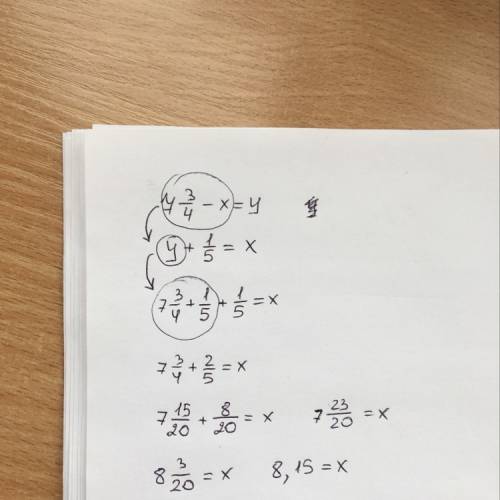 7 3/4 - x = y
y + 1/5 = x
7 3/4 + 1/5 + 1/5 = x
7 3/4 + 2/5 = x
7 15/20 + 8/20 = x 7 23/20 = x
8 3/20 = x 8,15 = x